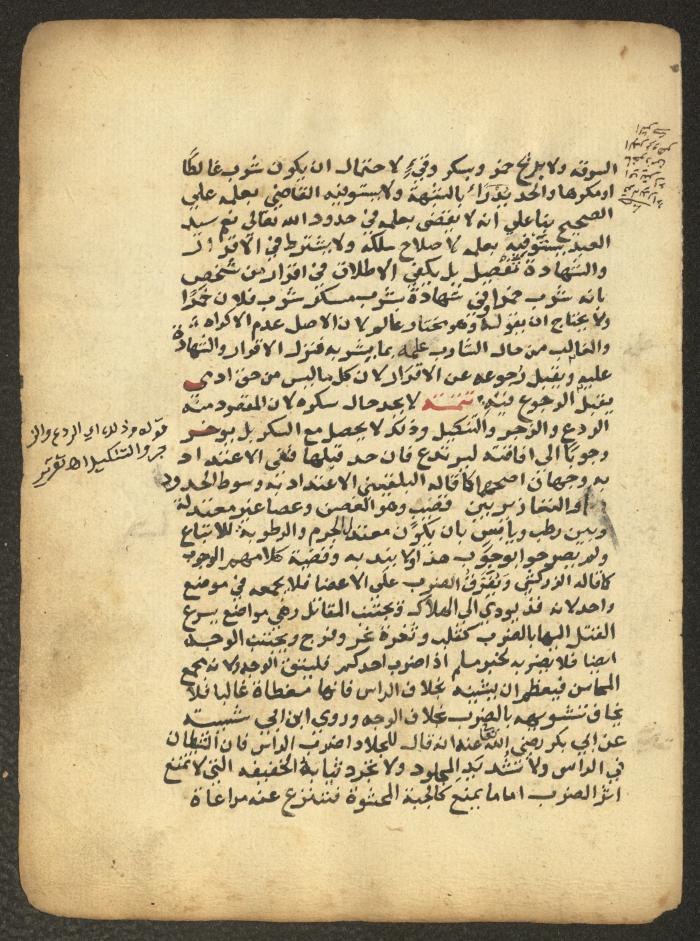 السرقة ولا بريح خمر وسكر وقيء لاحتمال ان يكون شرب غالطا
او مكرها والحد يدرأ بالشبهة ولا يستوفيه القاضي بعلمه على
الصحيح بنا على انه لا يقضى بعلمه في حدود الله تعالى نعم سيد
العبد يستوفيه بعلمه لاصلاح ملكه ولا يشترط في الاقرار
والشهادة تفصيل بل يكفي الاطلاق في اقرار من شخص
بانه شرب خمرا وفي شهادة بشرب مسكر شرب فلان خمرا
ولا يحتاج ان يقول وهو مختار عالم لان الاصل عدم الاكراه
والغالب من حال الشارب علمه بما يشربه فنزل الاقرار والشهادة
عليه ويقبل رجوعه عن الاقرار لان كل ما ليس من حق ادمي
يقبل الرجوع فيه تتمة لا يحد حال سكره لان المقصود منه
الردع والزجر والتنكيل وذلك لا يحصل مع السكر بل يوخر
وجوبا الى افاقته ليرتدع فان حد قبلها ففي الاعتداد
به وجهان اصحهما كما قاله البلقيني الاعتداد به وسوط الحدود
او التعازير بين قضيب وهو الغصن وعصا غير معتدلة
وبين رطب ويابس بان يكون معتدل الجرم والرطوبة للاتباع
ولم يصرحوا بوجوب هذا ولا بندبه وقضية كلامهم الوجوب
كما قاله الزركشي ويفرق الضرب على الاعضا فلا يجمعه في موضع
واحد لانه قد يودي الى الهلاك ويجتنب المقاتل وهي مواضع يسرع
القتل اليها بالضرب كقلب وثغرة نحر وفرج ويجتنب الوجه
ايضا فلا يضربه لخبر مسلم اذا ضرب احدكم فليتق الوجه ولانه مجمع
المحاسن فيعظم اثر شينه بخلاف الراس فانها مغطاة غالبا فلا
يخاف تشويهه بالضرب بخلاف الوجه وروي ابن ابي شيبة
عن ابي بكر رضي الله تعالى عنه انه قال للجلاد اضرب الراس فان الشيطان
في الراس ولا تشد يد المجلود ولا تجرد ثيابه الخفيفه التي لا تمنع
اثر الضرب اما ما يمنع كالجبة المحشوة فتنزع عنه مراعاة
قوله وذلك اي الردع والز
جر والتنكيل اه تقرير